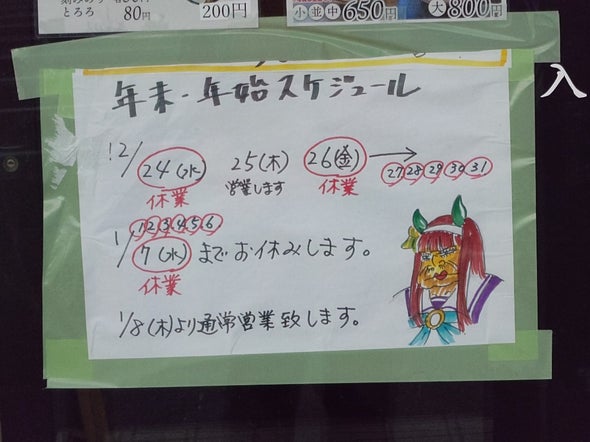 とろろ
80円
200円
小 並 中 650円
大 800円
入
年末・年始スケジュール
12/24(水) 25(木) 26(金)→27 28 29 30 31
休業 営業します 休業
1 2 3 4 5 6
1/7(水)までお休みします。
休業
1/8(木)より通常営業致します。